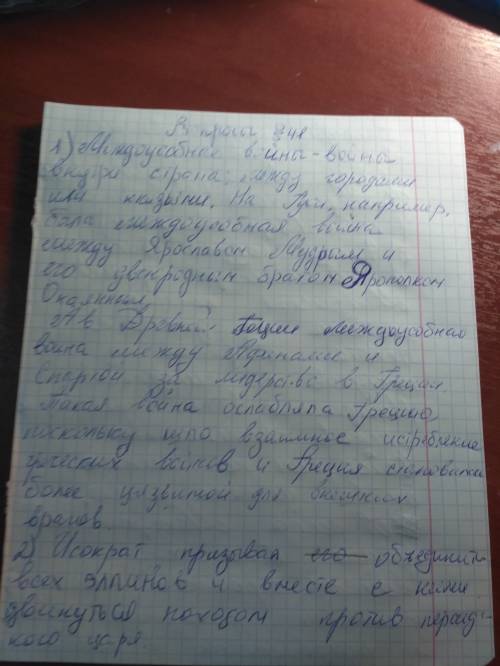 Вопросы §41
1) Междоусобная война - война
внутри страны, между городами
или князьями. На Руси, например,
была междоусобная война
между Ярославом Мудрым и
его двоюродным братом Ярополком
Окаянным.
А в Древней Греции междоусобная
война между Афинами и
Спартой за лидерство в Греции.
Такая война ослабляла Грецию,
поскольку шло взаимное истребление
греческих воинов и Греция становилась
более уязвимой для внешних
врагов.
2) Исократ призывал его объединить
всех эллинов и вместе с ними
двинуться походом против персид-
кого царя.